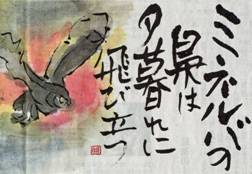 ミネルバの
梟は
夕暮れに
飛び立つ